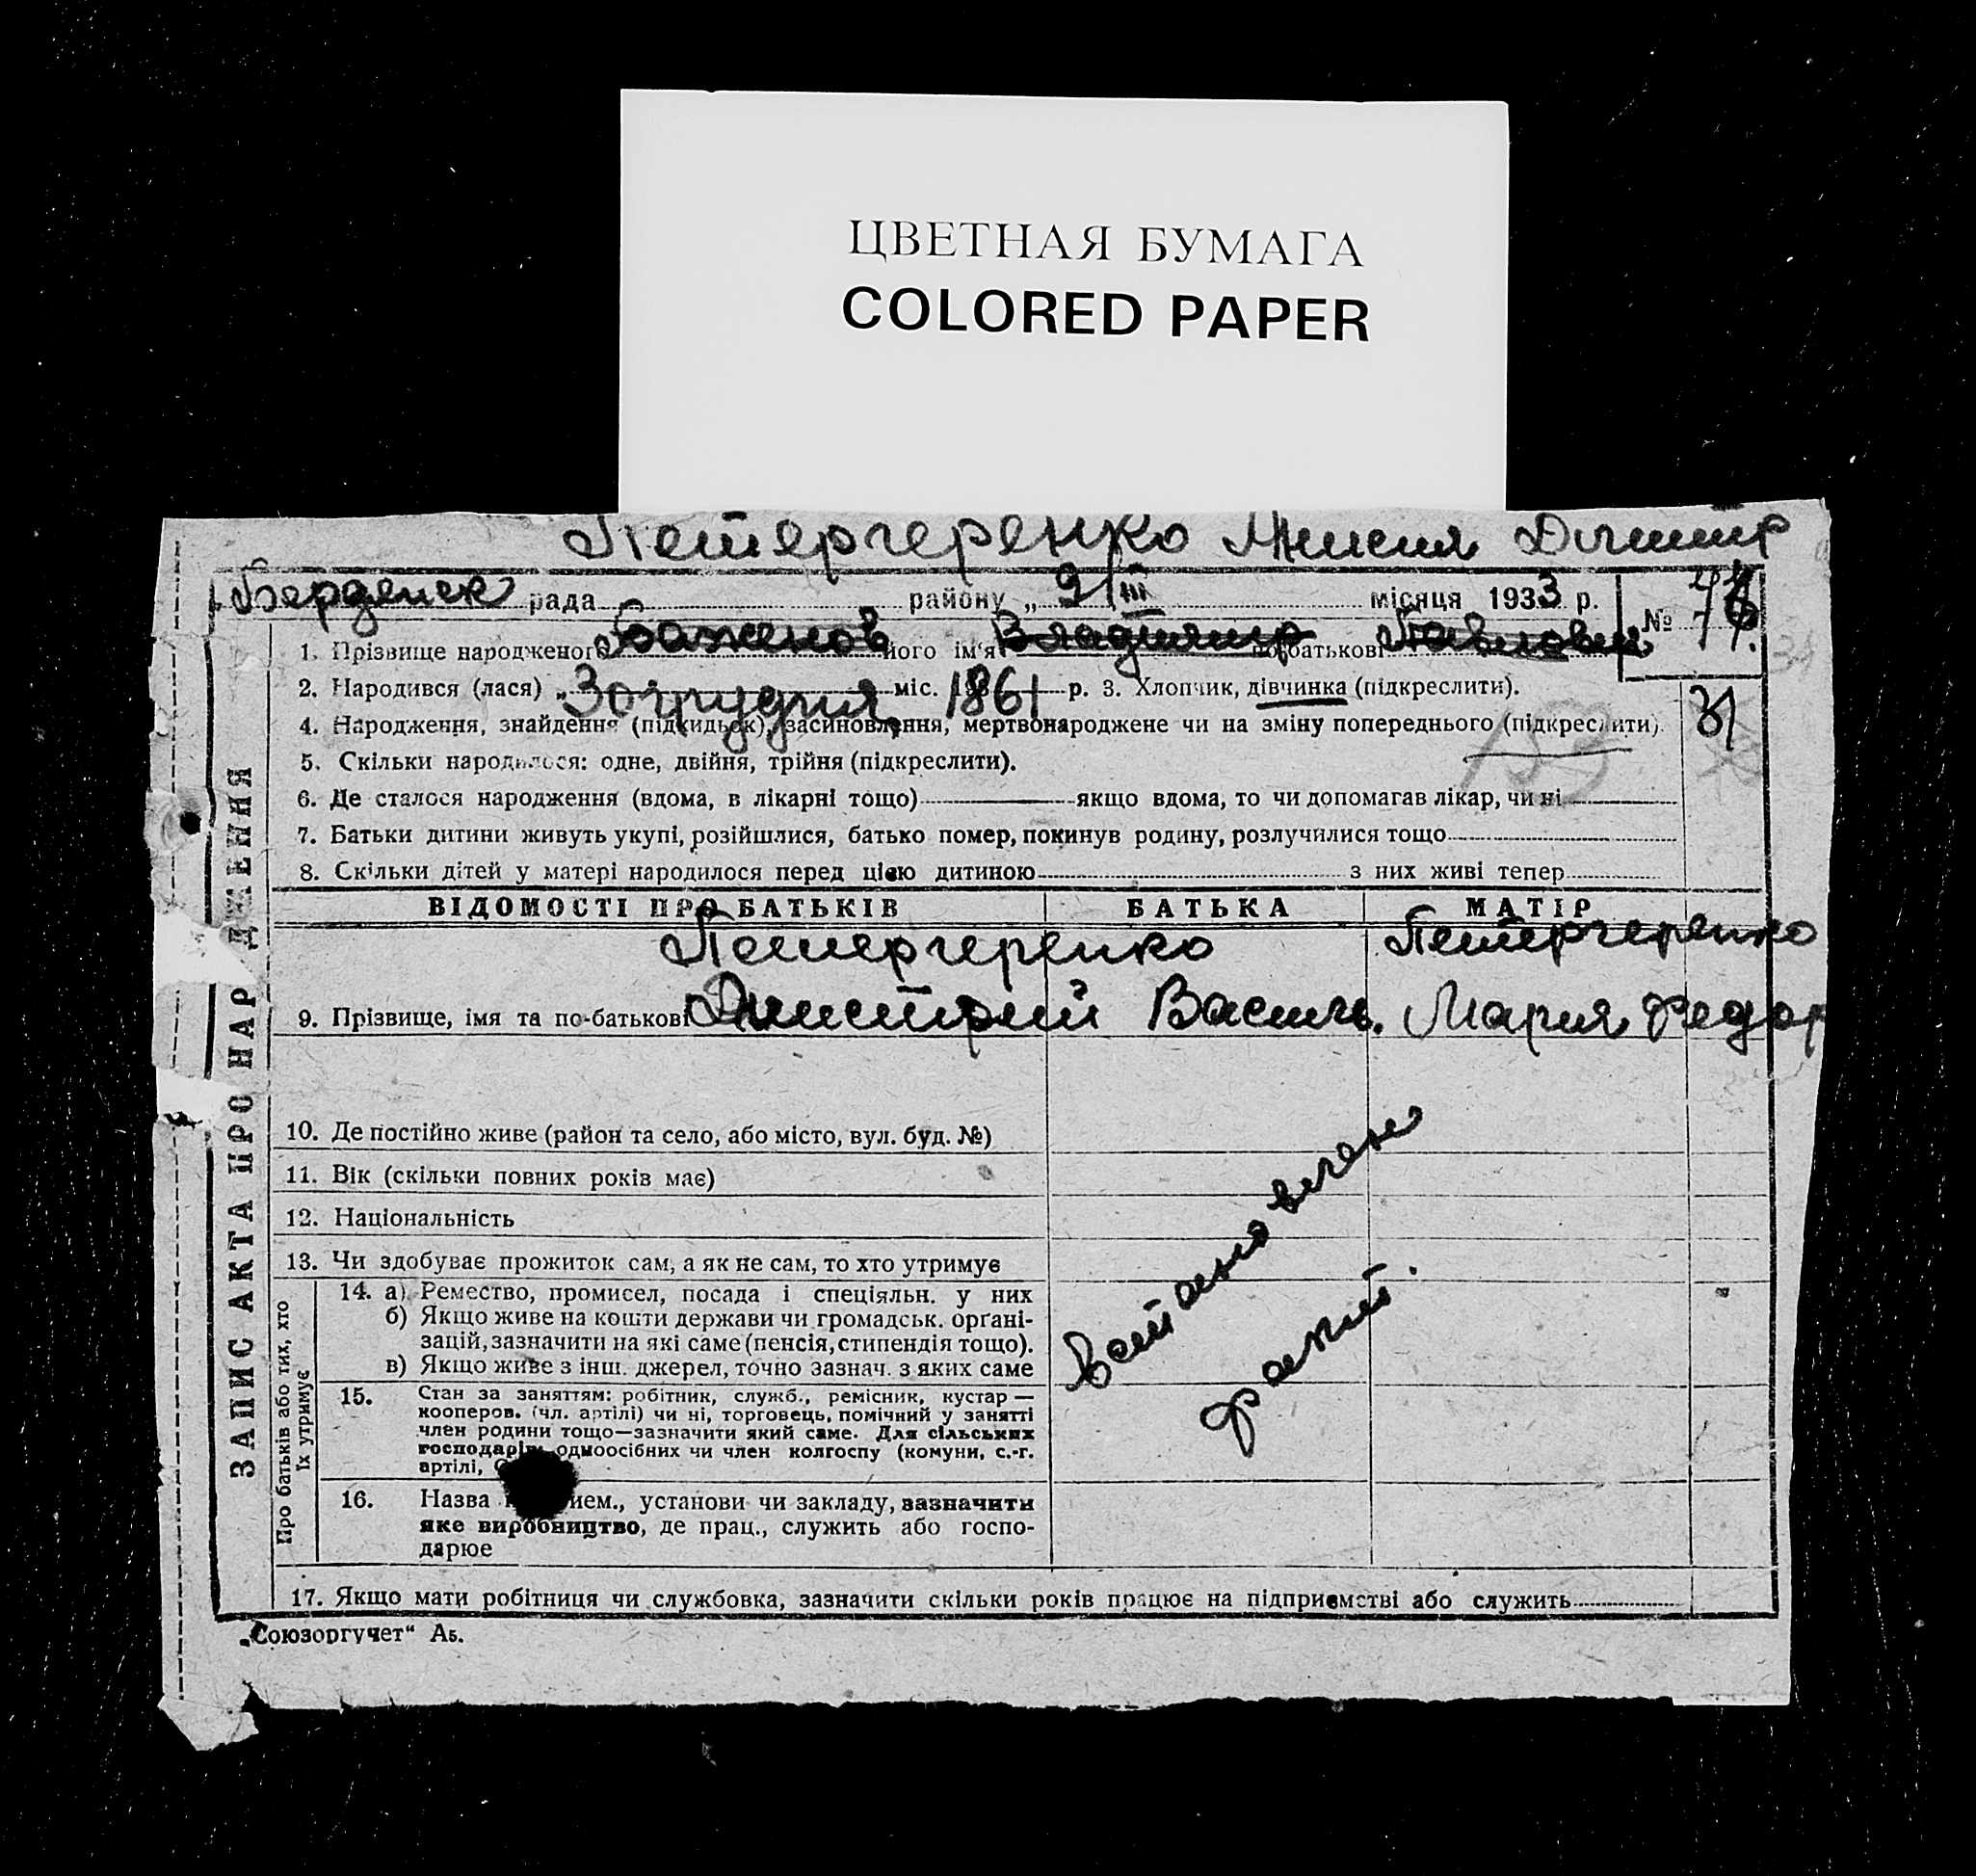 ЦВЕТНАЯ БУМАГА
COLORED PAPER
Петергеренко Анисия Дмитр
Бердянск рада районy „ 9/III місяця 1933 р. №
1. Прізвище народженого Баженов його ім'я Владимир по батькові Павлович
2. Народився (лася) „30 грудня міс. 1861 р. 3. Хлопчик, дівчинка (підкреслити). 31
4. Народження, знайдення (підкидьок), засиновлення, мертвонароджене чи на зміну попереднього (підкреслити).
5. Скільки народилося: одне, двійня, трійня (підкреслити).
6. Де сталося народження (вдома, в лікарні тощо) якщо вдома, то чи допомагав лікар, чи ні
7. Батьки дитини живуть укупі, розійшлися, батько помер, покинув родину, розлучилися тощо
8. Скільки дітей у матері народилося перед цією дитиною з них живі тепер
ЗАПИС АКТА ПРО НАРОДЖЕННЯ
ВІДОМОСТІ ПРО БАТЬКІВ БАТЬКА МАТІР
Петергеренко Петергеренко
9. Прізвище, імя та по-батькові Дмитрий Василь. Мария Федор
10. Де постійно живе (район та село, або місто, вул. буд. №)
11. Вік (скільки повних років має)
12. Національність
13. Чи здобуває прожиток сам, а як не сам, то хто утримує
Про батьків або тих, хто їх утримує
14. а) Ремество, промисел, посада і спеціяльн. у них
б) Якщо живе на кошти держави чи громадськ. орґані-
зацій, зазначити на які саме (пенсія, стипендія тощо).
в) Якщо живе з інш. джерел, точно зазнач. з яких саме
15. Стан за заняттям: робітник, служб., ремісник, кустар —
кооперов. (чл. артілі) чи ні, торговець, помічний у занятті
член родини тощо—зазначити який саме. Для сільських
господарів: одноосібних чи член колгоспу (комуни, с.-г.
артілі,
16. Назва ием., установи чи закладу, зазначити
яке виробництво, де прац., служить або госпо-
дарює
Встановлене
факт.
17. Якщо мати робітниця чи службовка, зазначити скільки років працює на підприємстві або служить
„Союзоргучет“ А5.